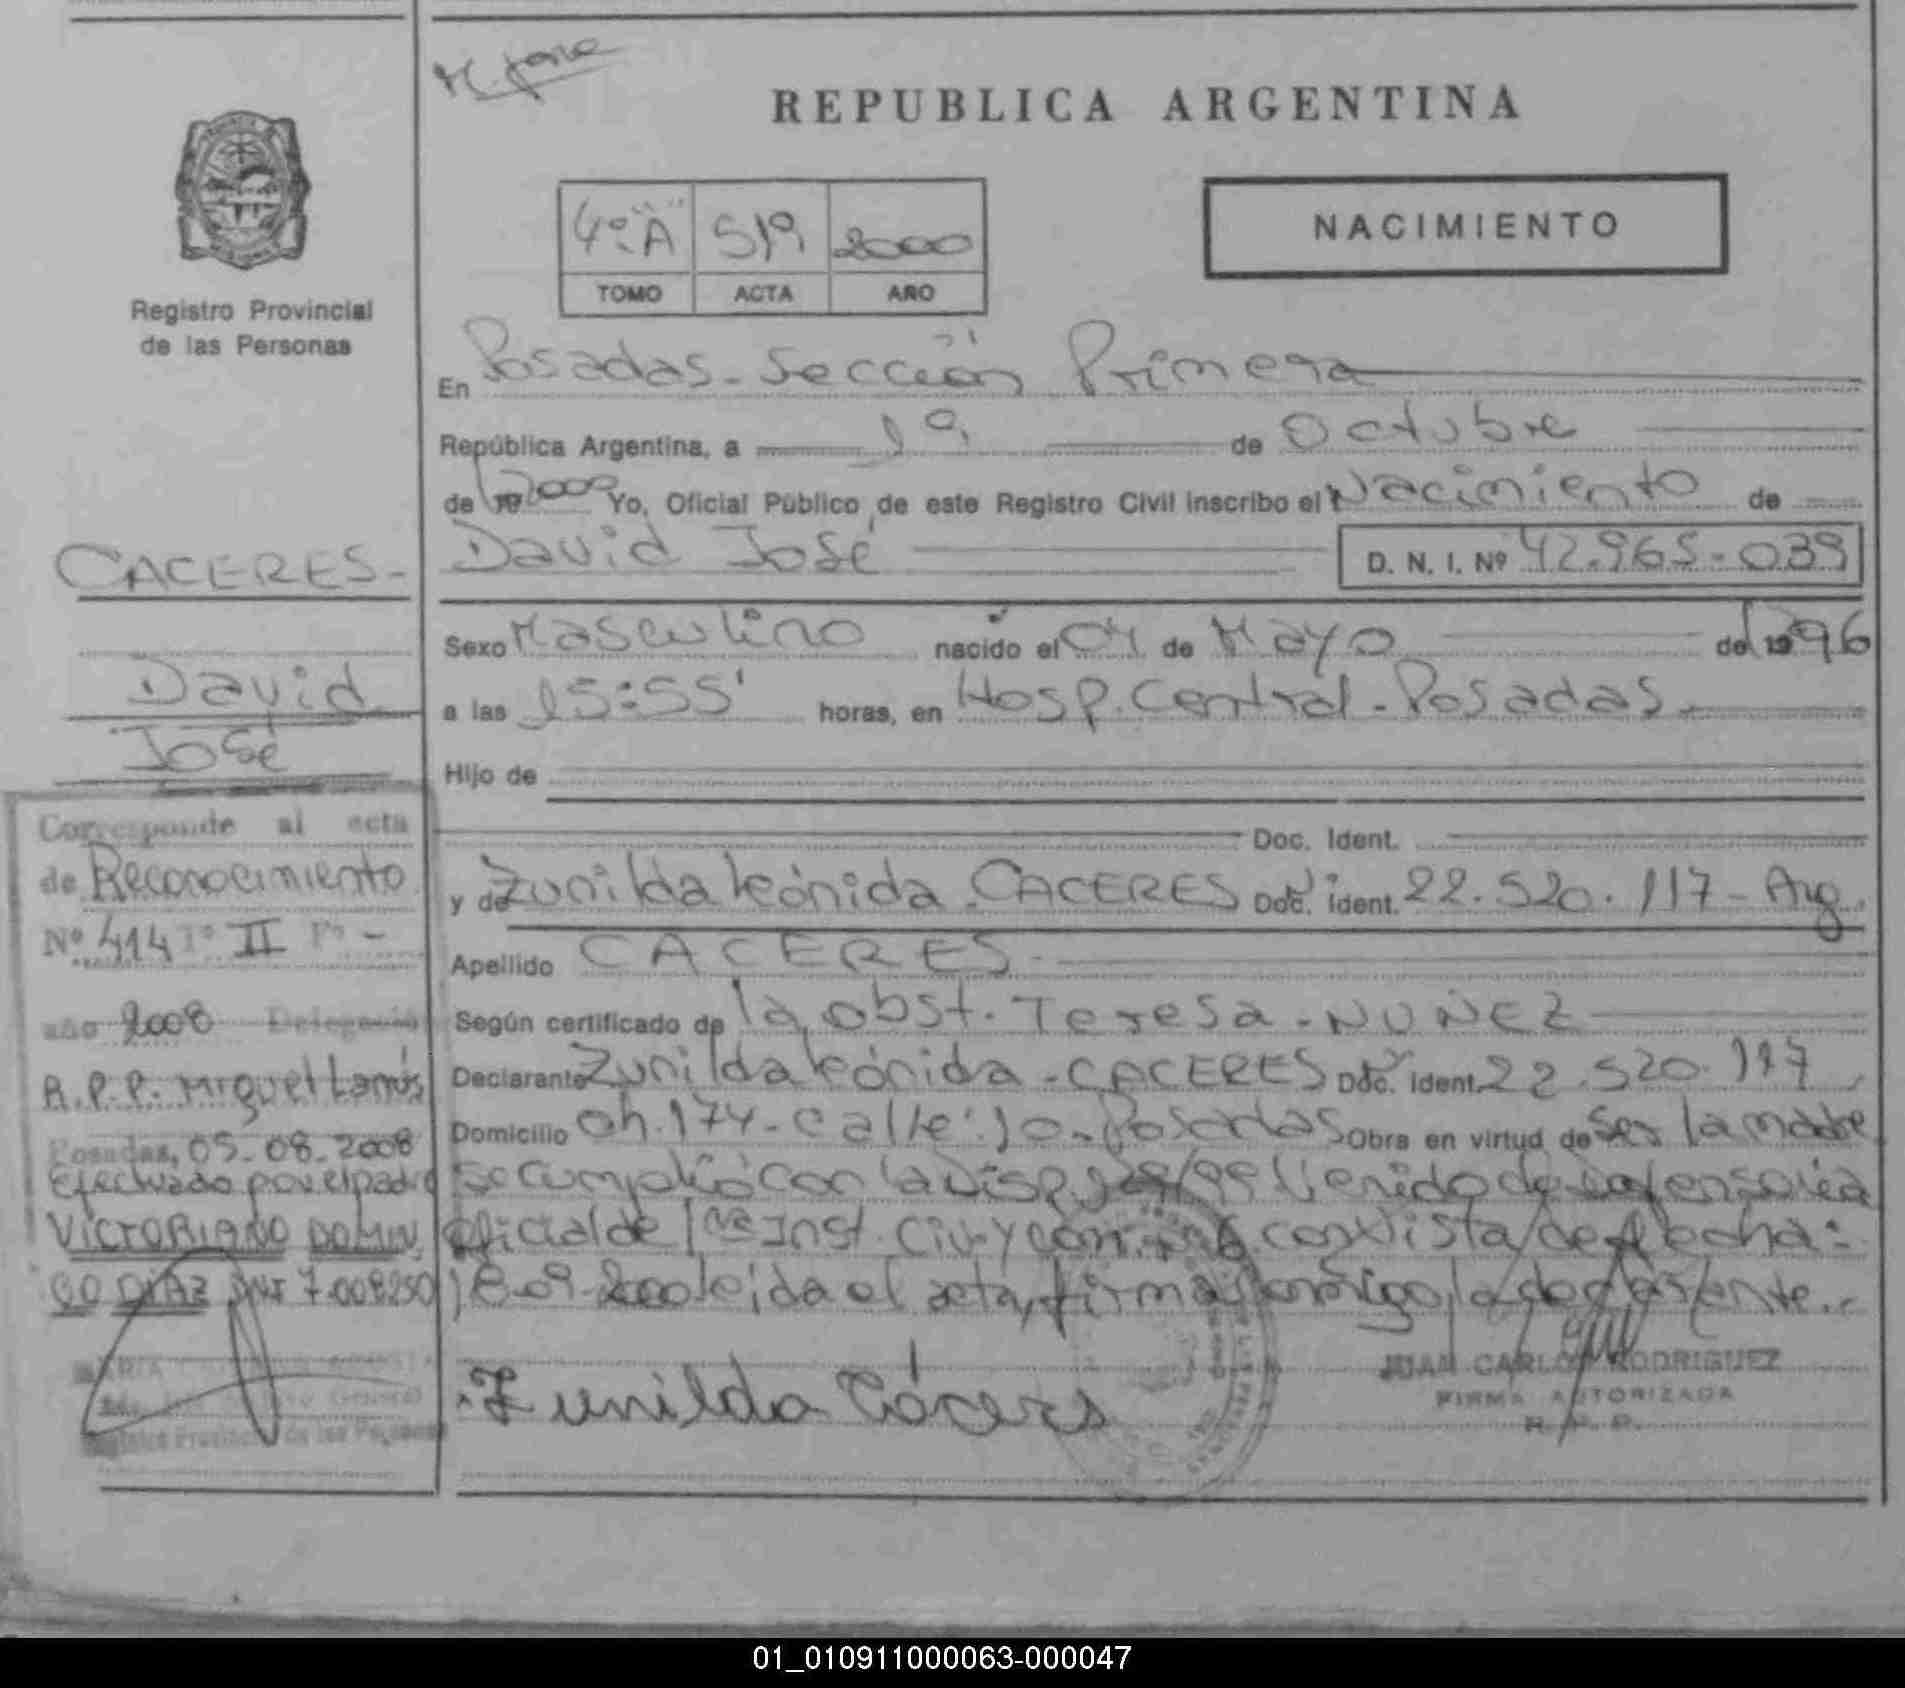 REPUBLICA ARGENTINA
4º "A"
519
2000
TOMO
ACTA
AÑO
NACIMIENTO
Registro Provincial
de las Personas
En Posadas - Sección Primera
República Argentina, a 1º de Octubre
de 2000 Yo, Oficial Público de este Registro Civil inscribo el Nacimiento de
David José
D. N. I. Nº 42.965.039
Sexo Masculino nacido el 04 de Mayo de 1996
a las 15:55' horas, en Hosp. Central - Posadas.
Hijo de
Doc. Ident.
y de Zunilda Leónida CACERES Doc. Ident. 22.520.117 - Arg.
Apellido CACERES
Según certificado de la obst. Teresa - NUÑEZ
Declarante Zunilda Leónida - CACERES Doc. Ident. 22.520.117
Domicilio Ch. 174 - Calle: 10 - Posadas Obra en virtud de ser la madre
se cumplió con la Disp. /99 Venido de Defensoría
oficial de 1ra Inst. Civ. y Com. Nº 6 con vista de fecha:
18-09-2000 leída el acta, firma conmigo la declarante.-
Zunilda Cáceres
JUAN CARLOS RODRIGUEZ
FIRMA AUTORIZADA
R. P. P.
CACERES -
David
José
Corresponde al acta
de Reconocimiento
Nº 414 Tº II Fº -
año 2008 Delegación
R.P.P. Miguel Lanús
Posadas, 05-08-2008
Efectuado por el padre
VICTORIANO DOMIN
GO DIAZ DNI 7.008250
Registro Provincial de las Personas
01_010911000063-000047